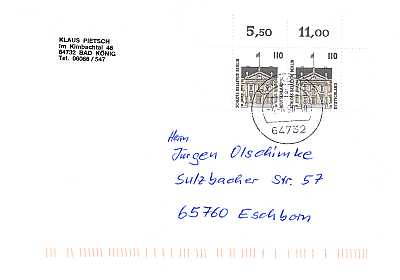 KLAUS PIETSCH
Im Kimbachtal 46
64732 BAD KÖNIG
Tel. 06066 / 547
5,50 11,00
110 110
SCHLOSS BELLEVUE BERLIN
SCHLOSS BELLEVUE BERLIN
DEUTSCHLAND
64732
Herrn
Jürgen Olschimke
Sulzbacher Str. 57
65760 Eschborn